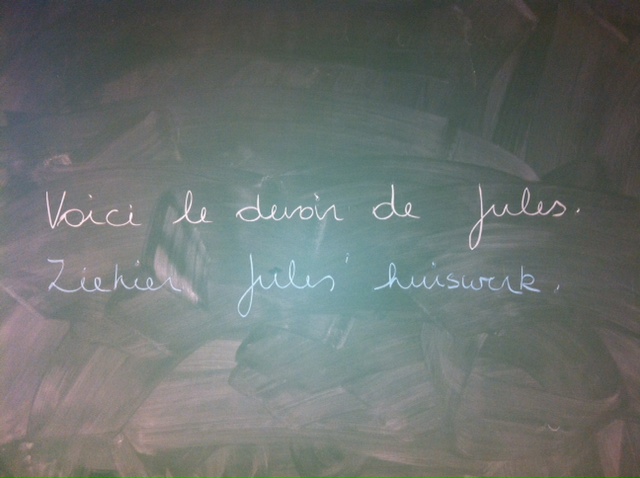 Voici le devoir de Jules.
Ziehier Jules' huiswerk.